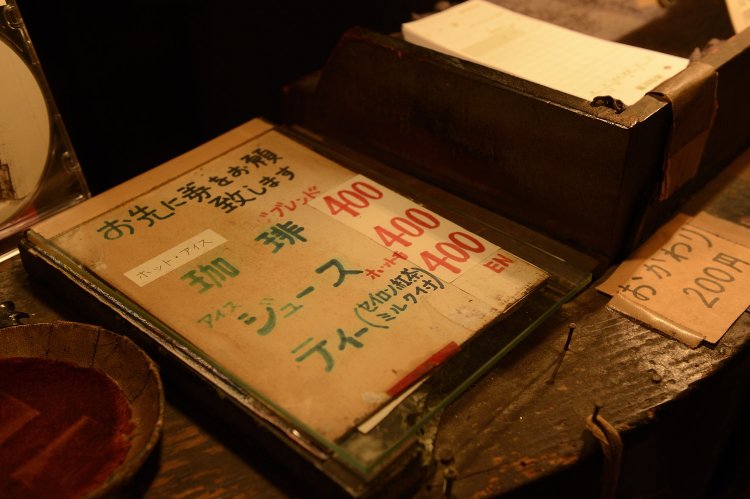 お先に券をお願
致します
ホット・アイス
珈琲 ブレンド 400
アイス ジュース ホットも 400
ティー(セイロン紅茶 400
ミルクイ付)
EN
おかわり
200円